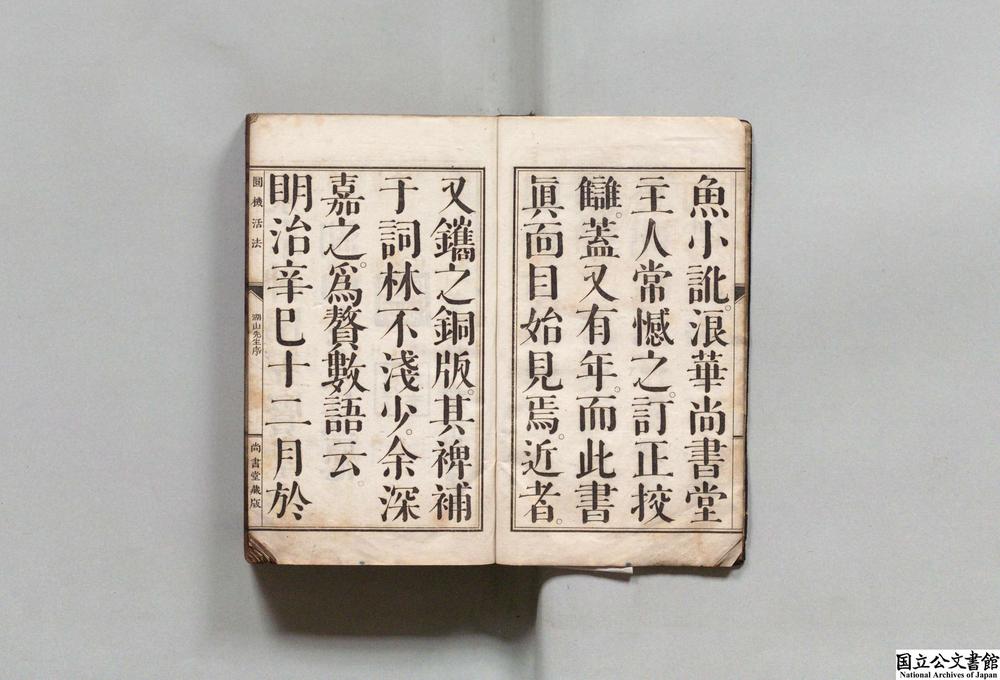 魚小訛。浪華尚書堂
主人常憾之。訂正挍
讎。蓋又有年。而此書
眞面目始見焉。近者。
又鐫之銅版。其裨補
于詞林不淺少。余深
嘉之。爲贅數語云。
明治辛巳十二月於
圓機活法
湖山先生序
尚書堂藏版
国立公文書館
National Archives of Japan